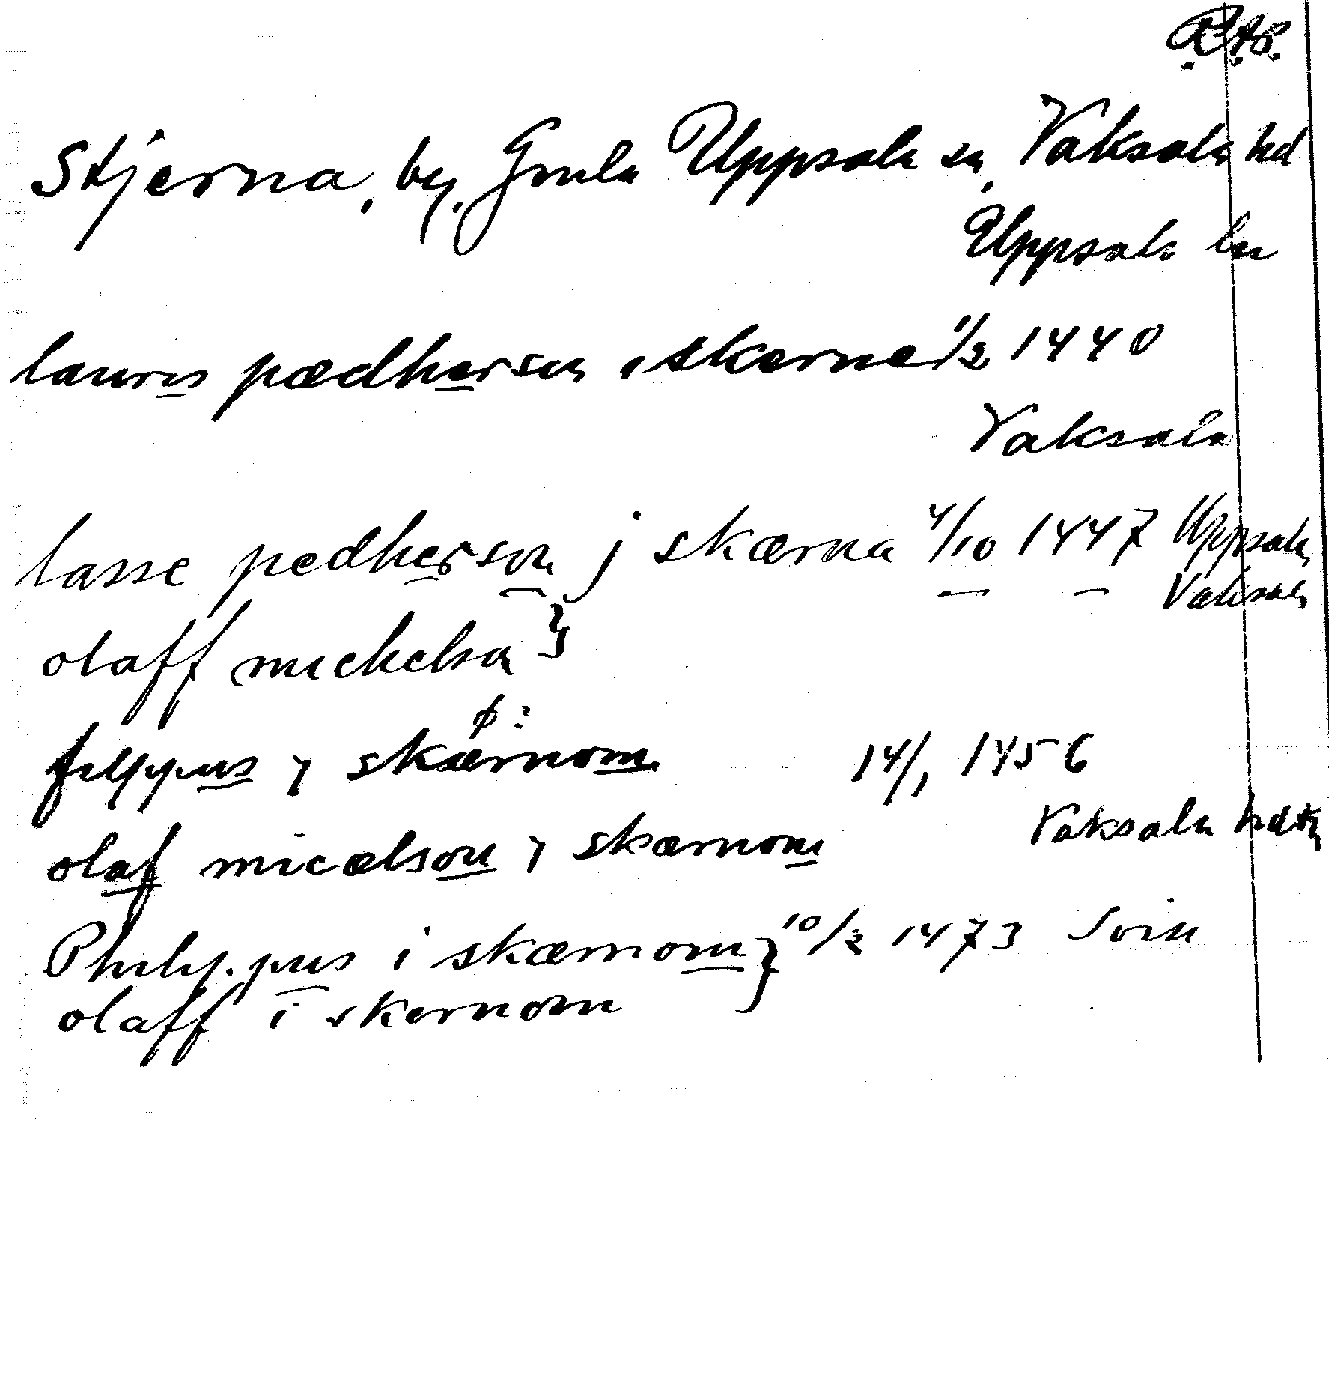 R.A.P.
Stjerna, by, Gamla Uppsala sn, Vaksala hd
Uppsala län
laurens pædherson i skærne 1/2 1440
Vaksala
lasse pedherson j skærna 4/10 1447 Uppsala
Vaksala
olaff mickelsa }
ɸ:
filippus y skærnom 14/1 1456
olaf micælson y skærnom Vaksala hdsr
Philippus i skærnom } 10/2 1473
olaff i skernom